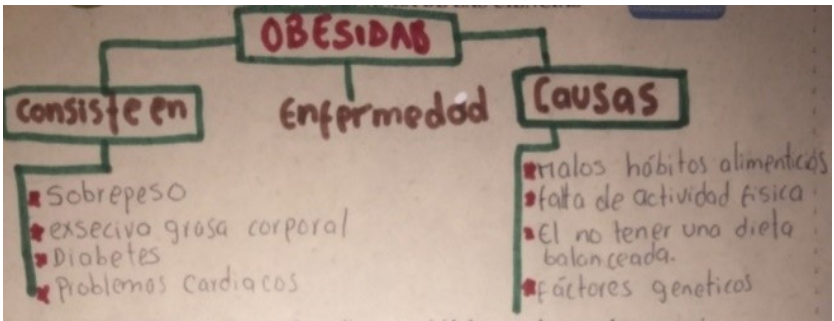 OBESIDAD
consiste en
Enfermedad
Causas
Sobrepeso
exsecivo grasa corporal
Diabetes
Problemas Cardiacos
malos hábitos alimenticios
falta de actividad física
El no tener una dieta
balanceada.
Fáctores geneticos